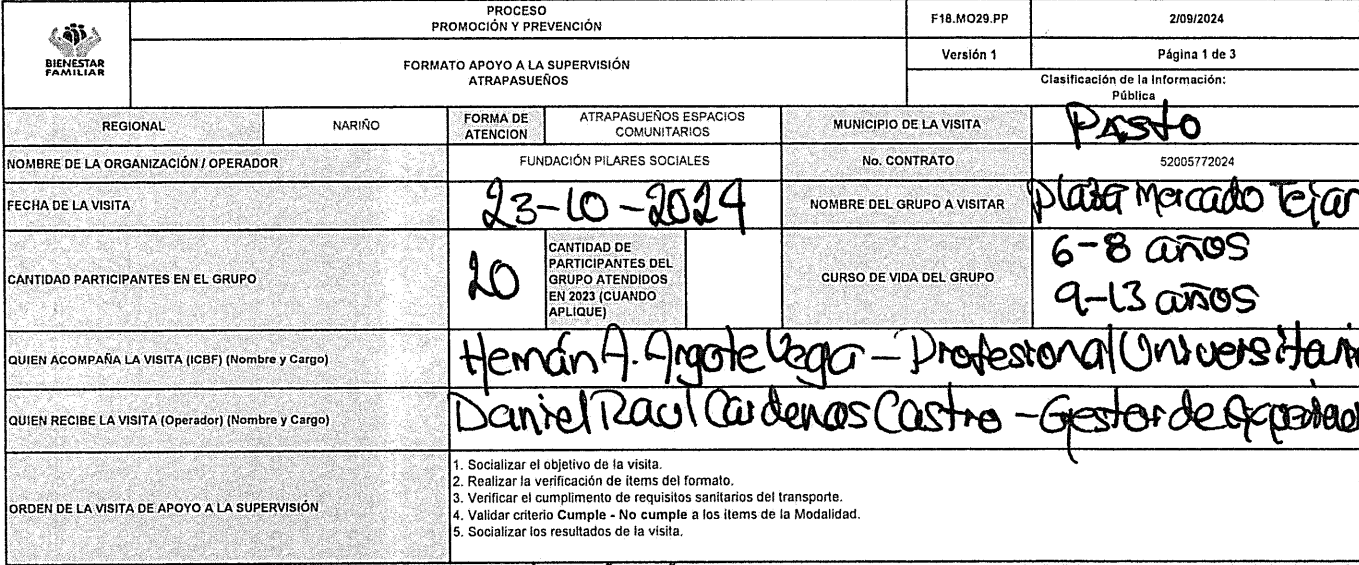 PROCESO
PROMOCIÓN Y PREVENCIÓN
F18.MO29.PP
2/09/2024
BIENESTAR
FAMILIAR
FORMATO APOYO A LA SUPERVISIÓN
ATRAPASUEÑOS
Versión 1
Página 1 de 3
Clasificación de la Información:
Pública
REGIONAL
NARIÑO
FORMA DE
ATENCION
ATRAPASUEÑOS ESPACIOS
COMUNITARIOS
MUNICIPIO DE LA VISITA
Pasto
NOMBRE DE LA ORGANIZACIÓN / OPERADOR
FUNDACIÓN PILARES SOCIALES
No. CONTRATO
52005772024
FECHA DE LA VISITA
23-10-2024
NOMBRE DEL GRUPO A VISITAR
Plaza Mercado Tejar
CANTIDAD PARTICIPANTES EN EL GRUPO
20
CANTIDAD DE
PARTICIPANTES DEL
GRUPO ATENDIDOS
EN 2023 (CUANDO
APLIQUE)
CURSO DE VIDA DEL GRUPO
6-8 años
9-13 años
QUIEN ACOMPAÑA LA VISITA (ICBF) (Nombre y Cargo)
Hernán A. Argote Vega - Profesional Universitari
QUIEN RECIBE LA VISITA (Operador) (Nombre y Cargo)
Daniel Raul Cardenas Castro - Gestor de
ORDEN DE LA VISITA DE APOYO A LA SUPERVISIÓN
1. Socializar el objetivo de la visita.
2. Realizar la verificación de items del formato.
3. Verificar el cumplimento de requisitos sanitarios del transporte.
4. Validar criterio Cumple - No cumple a los items de la Modalidad.
5. Socializar los resultados de la visita.